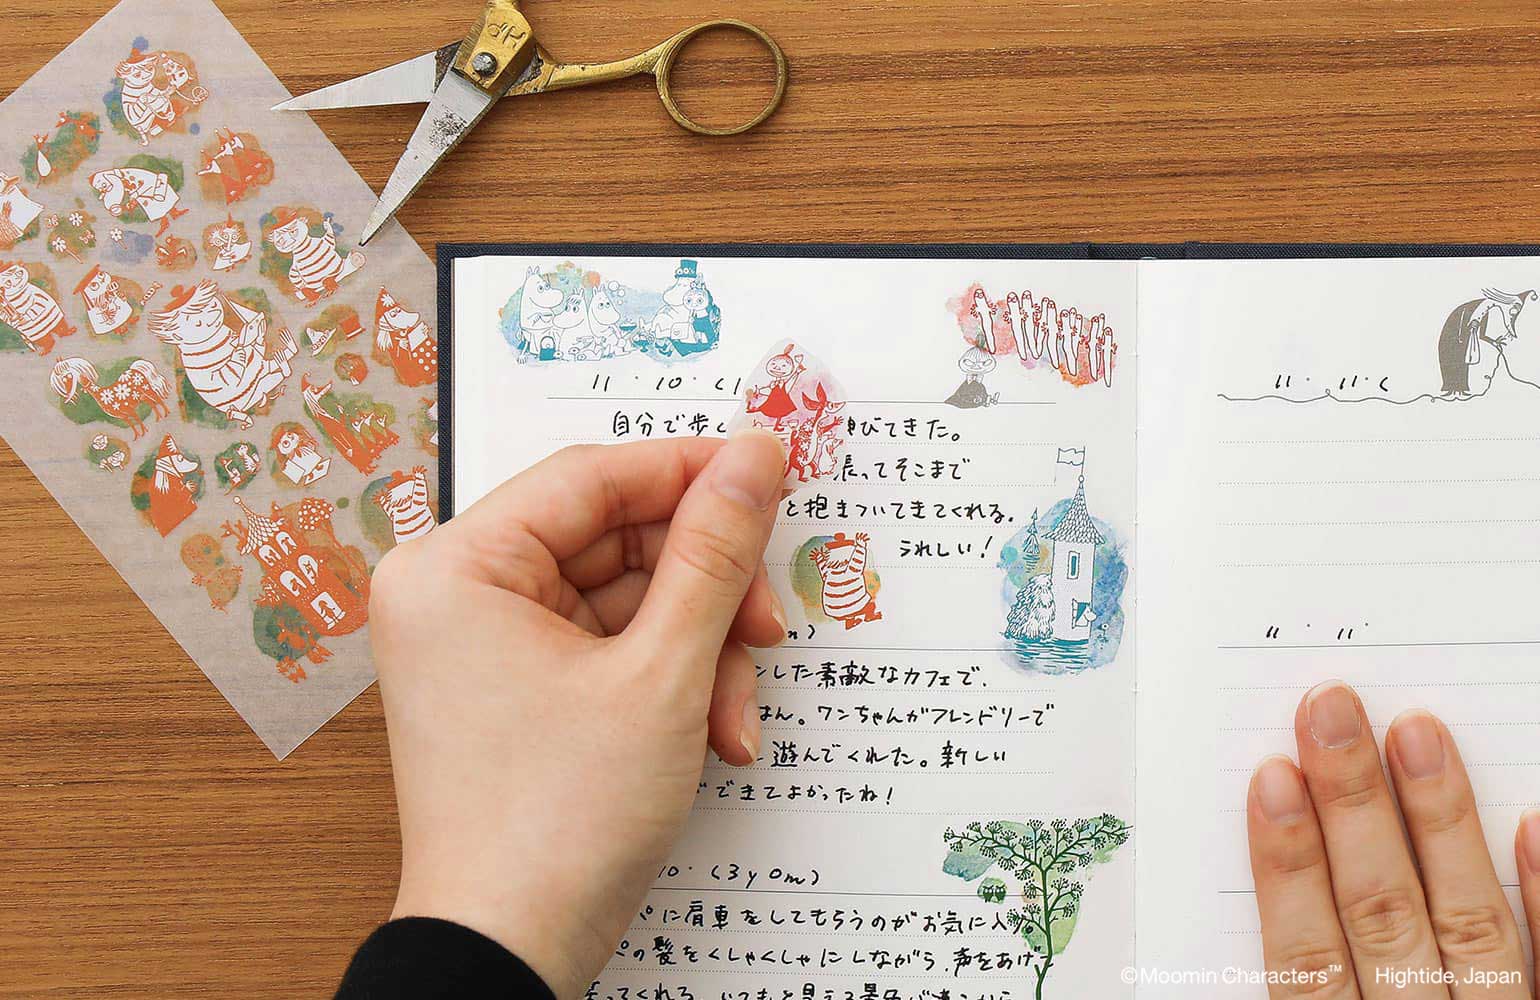 11・10・(1
11・11・(
自分で歩く
伸びてきた。
張ってそこまで
と抱きついてきてくれる。
うれしい!
m)
11・11・
した素敵なカフェで、
はん。ワンちゃんがフレンドリーで
遊んでくれた。新しい
できてよかったね!
10・(3y0m)
に肩車をしてもらうのがお気に入り。
の髪をくしゃくしゃにしながら、声をあげて
ってくれる。いつもと見える景色が違うから
©Moomin Characters™ Hightide, Japan